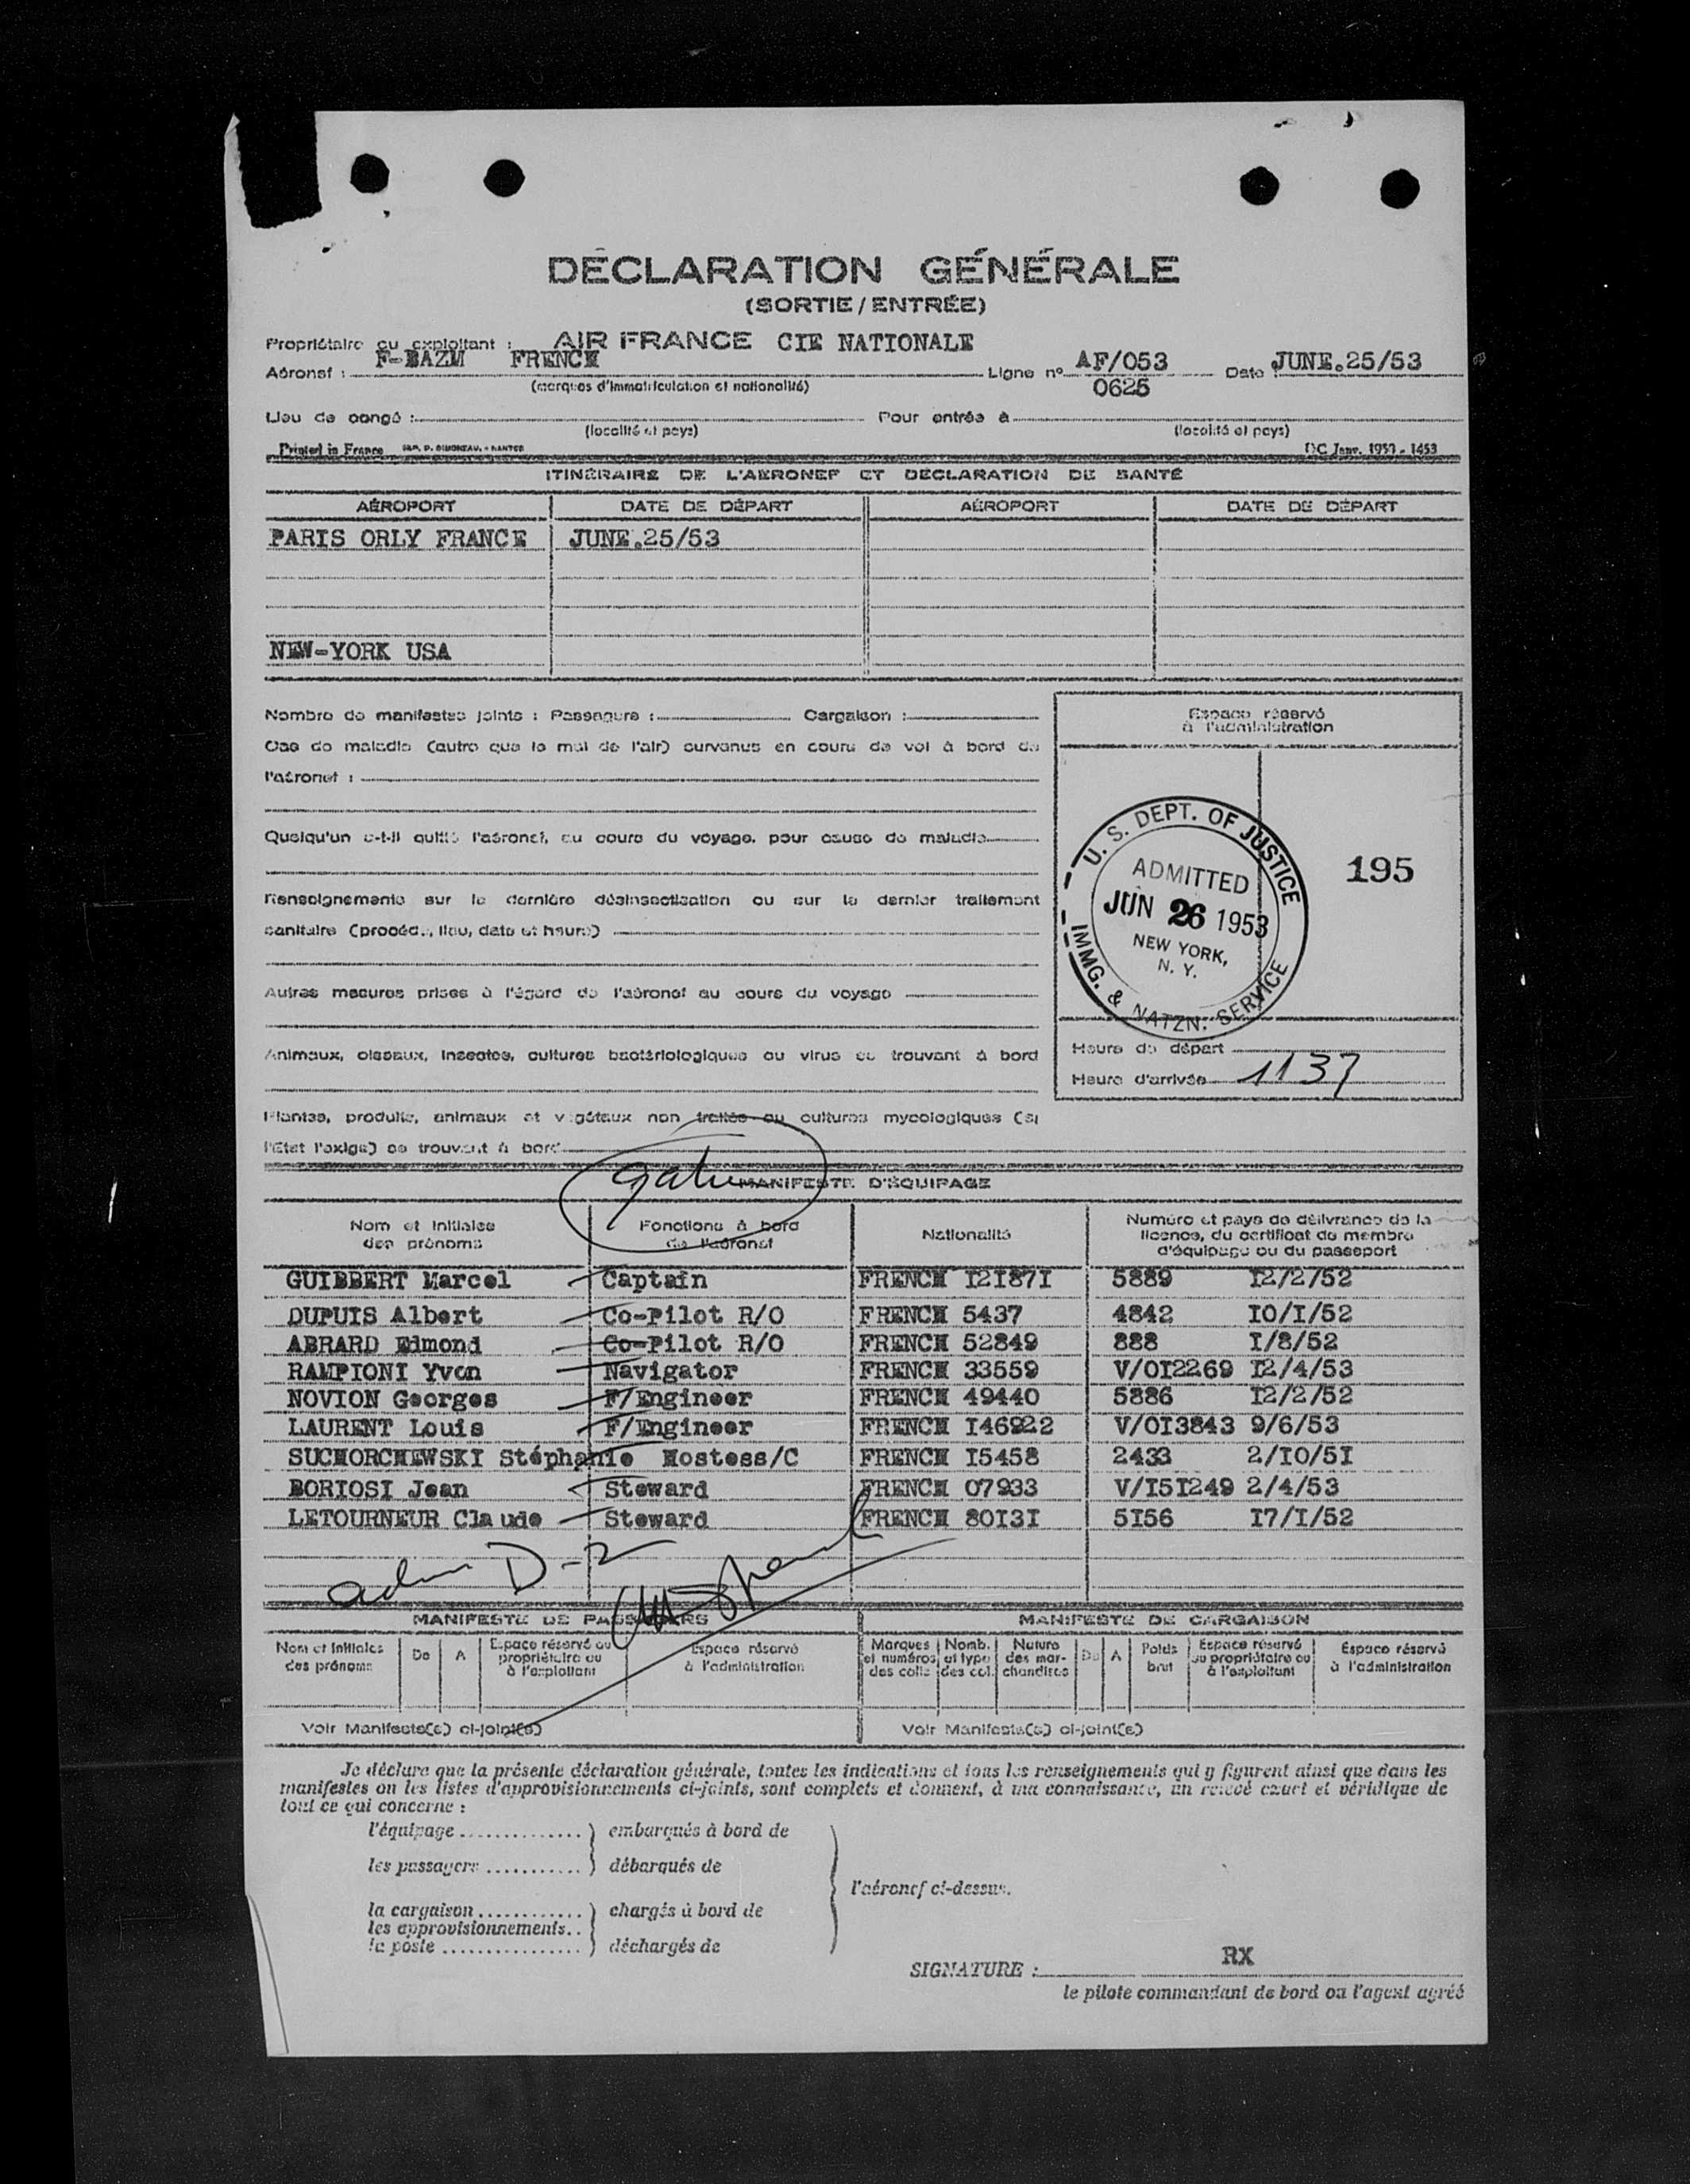 DÉCLARATION GÉNÉRALE
(SORTIE / ENTRÉE)
Propriétaire ou exploitant : AIR FRANCE CIE NATIONALE
Aéronef : F-BAZM FRENCH Ligne nº AF/053 Date JUNE.25/53
(marques d'immatriculation et nationalité) 0625
Lieu de congé : Pour entrée à
(localité et pays) (localité et pays)
Printed in France IMP. D. NANTES DC Janv. 1953 - 1453
ITINÉRAIRE DE L'AÉRONEF ET DÉCLARATION DE SANTÉ
AÉROPORT DATE DE DÉPART AÉROPORT DATE DE DÉPART
PARIS ORLY FRANCE JUNE.25/53
NEW-YORK USA
Nombre de manifestes joints : Passagers : Cargaison :
Cas de maladie (autre que le mal de l'air) survenus en cours de vol à bord de
l'aéronef :
Quelqu'un a-t-il quitté l'aéronef, au cours du voyage, pour cause de maladie
Renseignements sur la dernière désinsectisation ou sur le dernier traitement
sanitaire (procédé, lieu, date et heure)
Autres mesures prises à l'égard de l'aéronef au cours du voyage
Animaux, oiseaux, insectes, cultures bactériologiques ou virus se trouvant à bord
Plantes, produits, animaux et végétaux non traités ou cultures mycologiques (si
l'Etat l'exige) se trouvant à bord
Espace réservé
à l'administration
U. S. DEPT. OF JUSTICE
ADMITTED
JUN 26 1953
NEW YORK,
N. Y.
IMMG. & NATZN. SERVICE
195
Heure de départ
Heure d'arrivée 1137
MANIFESTE D'ÉQUIPAGE
Nom et initiales des prénoms Fonctions à bord de l'aéronef Nationalité Numéro et pays de délivrance de la licence, du certificat de membre d'équipage ou du passeport
GUIBBERT Marcel Captain FRENCH I2I87I 5889 I2/2/52
DUPUIS Albert Co-Pilot R/O FRENCH 5437 4842 IO/I/52
ABRARD Edmond Co-Pilot R/O FRENCH 52849 888 I/8/52
RAMPIONI Yvon Navigator FRENCH 33559 V/OI2269 I2/4/53
NOVION Georges F/Engineer FRENCH 49440 5886 I2/2/52
LAURENT Louis F/Engineer FRENCH I46922 V/OI3843 9/6/53
SUCHORCHEWSKI Stéphanie Hostess/C FRENCH I5458 2433 2/IO/5I
BORIOSI Jean Steward FRENCH 07933 V/I5I249 2/4/53
LETOURNEUR Claude Steward FRENCH 80I3I 5I56 I7/I/52
adm D-2
MANIFESTE DE PASSAGERS MANIFESTE DE CARGAISON
Nom et initiales des prénoms De A Espace réservé au propriétaire ou à l'exploitant Espace réservé à l'administration Marques et numéros des colis Nomb. et type des col. Nature des marchandises De A Poids brut Espace réservé au propriétaire ou à l'exploitant Espace réservé à l'administration
Voir Manifeste(s) ci-joint(s) Voir Manifeste(s) ci-joint(s)
Je déclare que la présente déclaration générale, toutes les indications et tous les renseignements qui y figurent ainsi que dans les
manifestes ou les listes d'approvisionnements ci-joints, sont complets et donnent, à ma connaissance, un relevé exact et véridique de
tout ce qui concerne :
l'équipage .............. ) embarqués à bord de
les passagers ........... ) débarqués de
l'aéronef ci-dessus.
la cargaison ............ ) chargés à bord de
les approvisionnements..
la poste ................ ) déchargés de
SIGNATURE : RX
le pilote commandant de bord ou l'agent agréé